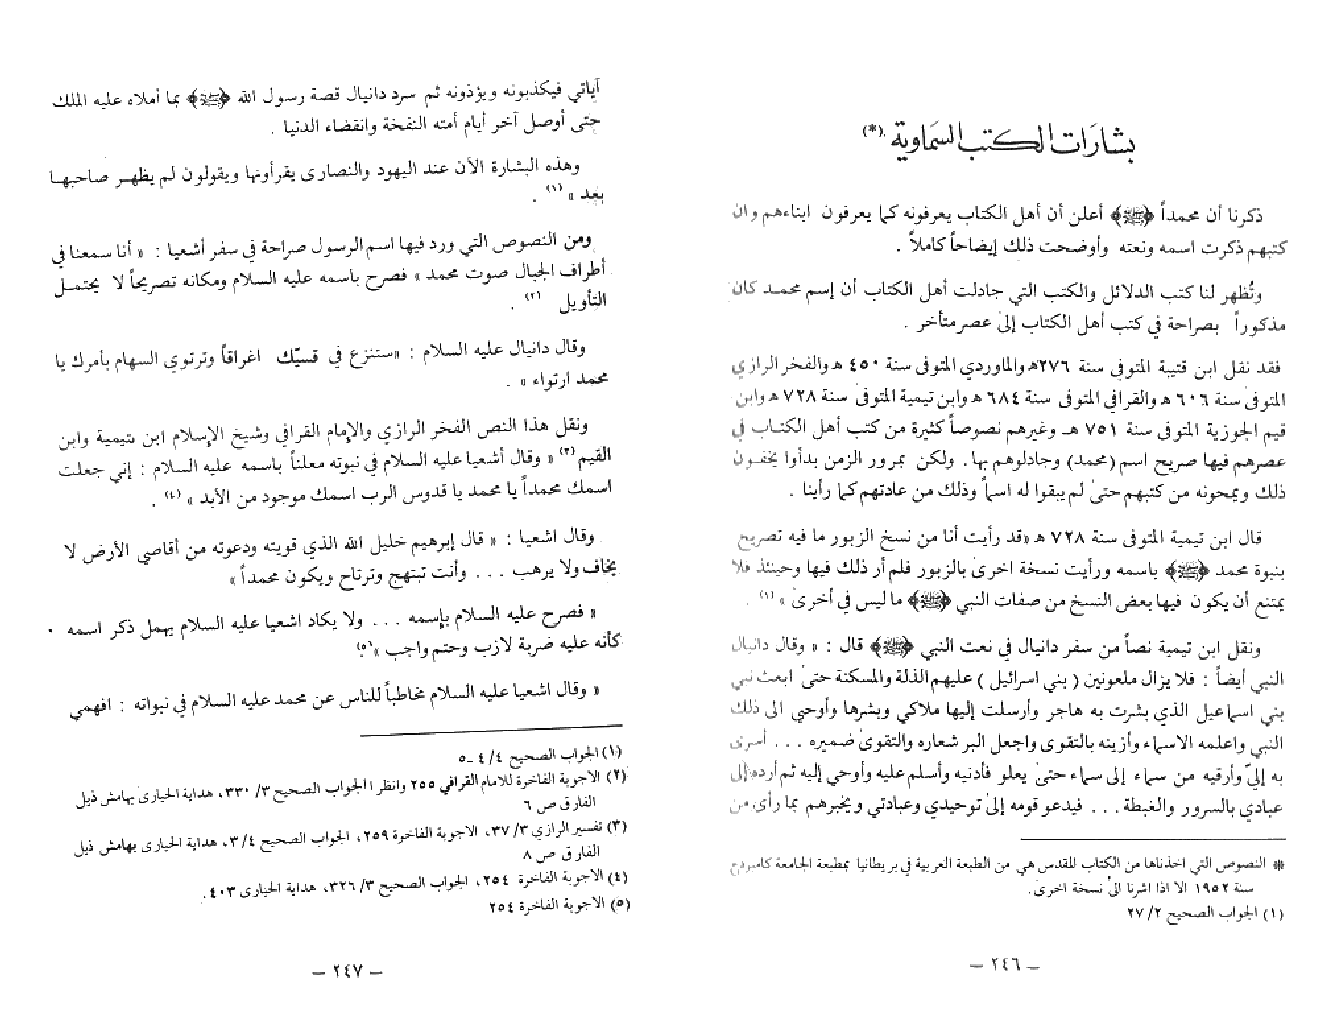 بشارات الكتب السماوية (*)
ذكرنا أن محمداً ﷺ أعلن أن أهل الكتاب يعرفونه كما يعرفون ابناءهم وان
كتبهم ذكرت اسمه ونعته وأوضحت ذلك إيضاحاً كاملاً .
وتُظهر لنا كتب الدلائل والكتب التي جادلت أهل الكتاب أن إسم محمد كان
مذكوراً بصراحة في كتب أهل الكتاب إلى عصر متأخر .
فقد نقل ابن قتيبة المتوفى سنة ٢٧٦هـ والماوردي المتوفى سنة ٤٥٠ هـ والفخر الرازي
المتوفى سنة ٦٠٦ هـ والقرافي المتوفى سنة ٦٨٤ هـ وابن تيمية المتوفى سنة ٧٢٨ هـ وابن
قيم الجوزية المتوفى سنة ٧٥١ هـ وغيرهم نصوصاً كثيرة من كتب أهل الكتاب في
عصرهم فيها صريح اسم (محمد) وجادلوهم بها . ولكن بمرور الزمن بدأوا يخفون
ذلك ويمحونه من كتبهم حتى لم يبقوا له اسماً وذلك من عادتهم كما رأينا .
قال ابن تيمية المتوفى سنة ٧٢٨ هـ «قد رأيت أنا من نسخ الزبور ما فيه تصريح
بنبوة محمد ﷺ باسمه ورأيت نسخة اخرى بالزبور فلم أر ذلك فيها وحينئذ فلا
يمتنع أن يكون فيها بعض النسخ من صفات النبي ﷺ ما ليس في أخرى » (١) .
ونقل ابن تيمية نصاً من سفر دانيال في نعت النبي ﷺ قال : « وقال دانيال
النبي أيضاً : فلا يزال ملعونين ( بني اسرائيل ) عليهم الذلة والمسكنة حتى ابعث نبي
بني اسماعيل الذي بشرت به هاجر وأرسلت إليها ملاكي وبشرها وأوحي الى ذلك
النبي واعلمه الاسماء وأزينه بالتقوى واجعل البر شعاره والتقوى ضميره ... أسرى
به إليّ وأرقيه من سماء إلى سماء حتى يعلو فأدنيه وأسلم عليه وأوحي إليه ثم أرده إلى
عبادي بالسرور والغبطة ... فيدعو قومه إلى توحيدي وعبادتي ويخبرهم بما رأى من
* النصوص التي اخذناها من الكتاب المقدس هي من الطبعة العربية في بريطانيا بمطبعة الجامعة كامبردج
سنة ١٩٥٢ الا اذا اشرنا الى نسخة اخرى .
(١) الجواب الصحيح ٢/ ٢٧
— ٢٤٦ —
آياتي فيكذبونه ويؤذونه ثم سرد دانيال قصة رسول الله ﷺ بما أملاه عليه الملك
حتى أوصل آخر أيام أمته النفخة وانقضاء الدنيا .
وهذه البشارة الآن عند اليهود والنصارى يقرأونها ويقولون لم يظهر صاحبها
بعد » (١) .
ومن النصوص التي ورد فيها اسم الرسول صراحة في سفر أشعيا : « أنا سمعنا في
أطراف الجبال صوت محمد » فصرح باسمه عليه السلام ومكانه تصريحاً لا يحتمل
التأويل (٢) .
وقال دانيال عليه السلام : «ستنزع في قسيّك اغراقاً وترتوي السهام بأمرك يا
محمد ارتواء » .
ونقل هذا النص الفخر الرازي والإمام القرافي وشيخ الإسلام ابن تيمية وابن
القيم (٣) « وقال أشعيا عليه السلام في نبوته معلناً باسمه عليه السلام : إني جعلت
اسمك محمداً يا محمد يا قدوس الرب اسمك موجود من الأبد » (٤) .
وقال اشعيا : « قال إبرهيم خليل الله الذي قويته ودعوته من أقاصي الأرض لا
يخاف ولا يرهب ... وأنت تبتهج وترتاح ويكون محمداً »
« فصرح عليه السلام بإسمه ... ولا يكاد اشعيا عليه السلام يهمل ذكر اسمه .
كأنه عليه ضربة لازب وحتم واجب » (٥)
« وقال اشعيا عليه السلام مخاطباً للناس عن محمد عليه السلام في نبواته : افهمي
(١) الجواب الصحيح ٤/ ٤ـ ٥
(٢) الاجوبة الفاخرة للامام القرافي ٢٥٥ وانظر الجواب الصحيح ٣/ ٣٣٠، هداية الحيارى بهامش ذيل
الفارق ص ٦
(٣) تفسير الرازي ٣/ ٣٧، الاجوبة الفاخرة ٢٥٩، الجواب الصحيح ٤/ ٣، هداية الحيارى بهامش ذيل
الفارق ص ٨
(٤) الاجوبة الفاخرة ٢٥٤، الجواب الصحيح ٣/ ٣٢٦، هداية الحيارى ٤٠٣ .
(٥) الاجوبة الفاخرة ٢٥٤
— ٢٤٧ —